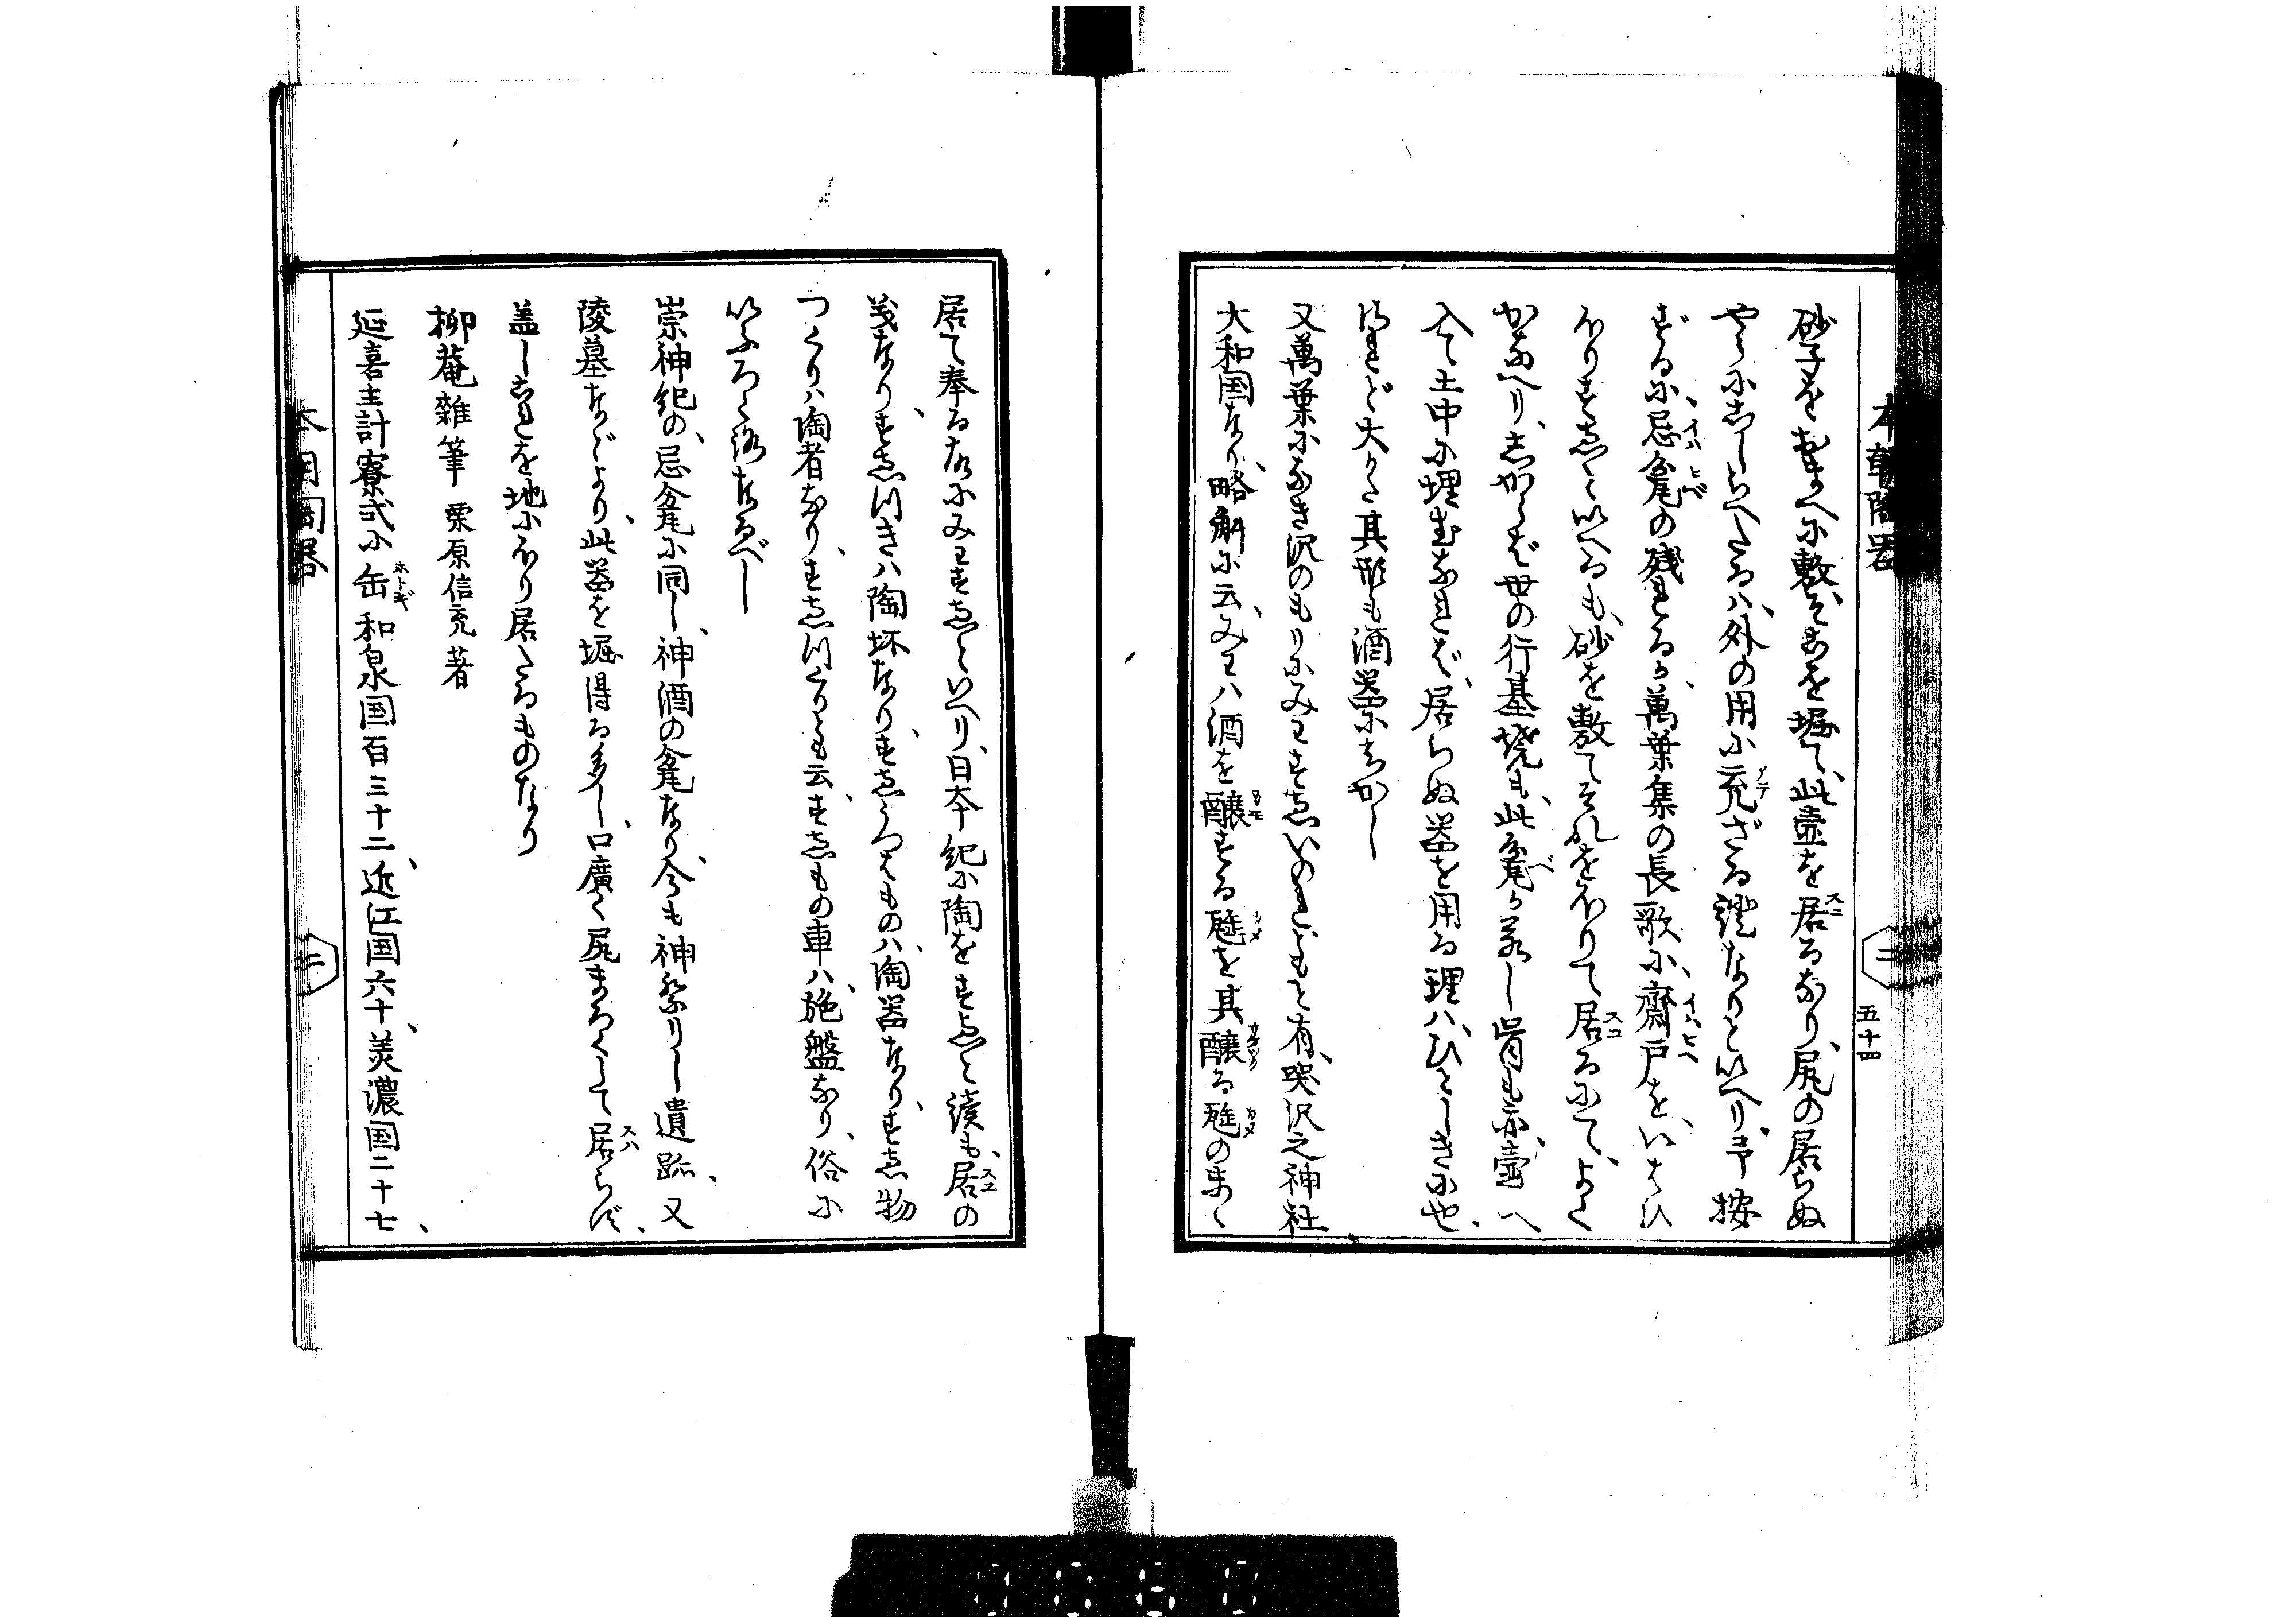 本朝陶器
二
五十四
砂子をおまへに敷、そこを堀て、此壷を居るなり、尻の居らぬ
やうにこしらへたるハ、外の用に充ざる證なりといへり、予按
ずるに、忌瓮の残れるが、萬葉集の長歌に、齋戸を、いはひ
ほりすゑといへるも、砂を敷て其れをほりて居るにて、よく
かなへり、しからば世の行基焼も、此瓮が若し皆も亦、壷へ
入て土中に埋むなれば、居らぬ器を用る理ハ、ひとしきに也、
されど大かた其形も酒器にちかし
又萬葉になき沢のもりにみわすゑいのれどもと有、哭沢之神社
大和国なり、略解に云、みわハ酒を醸する瓺を其醸る瓺のまゝ
居て奉る故にみわすゑといへり、日本紀に陶をすゑと讀も、居の
義なり、すゑ川きハ陶坏なり、すゑうつはものハ、陶器なり、すゑ物
つくりハ陶者なり、すゑ川くりとも云、すゑもの車ハ、施盤なり、俗に
いふろくろなるべし
崇神紀の、忌瓮に同し、神酒の瓮なり、今も神祭りし遺跡、又
陵墓などより、此器を堀得る多し、口廣く尻まろくして居らず、
盖しこれを地にほり居たるものなり
柳菴雜筆 栗原信充著
延喜主計寮式に缶和泉国百三十二、近江国六十、美濃国二十七、
二